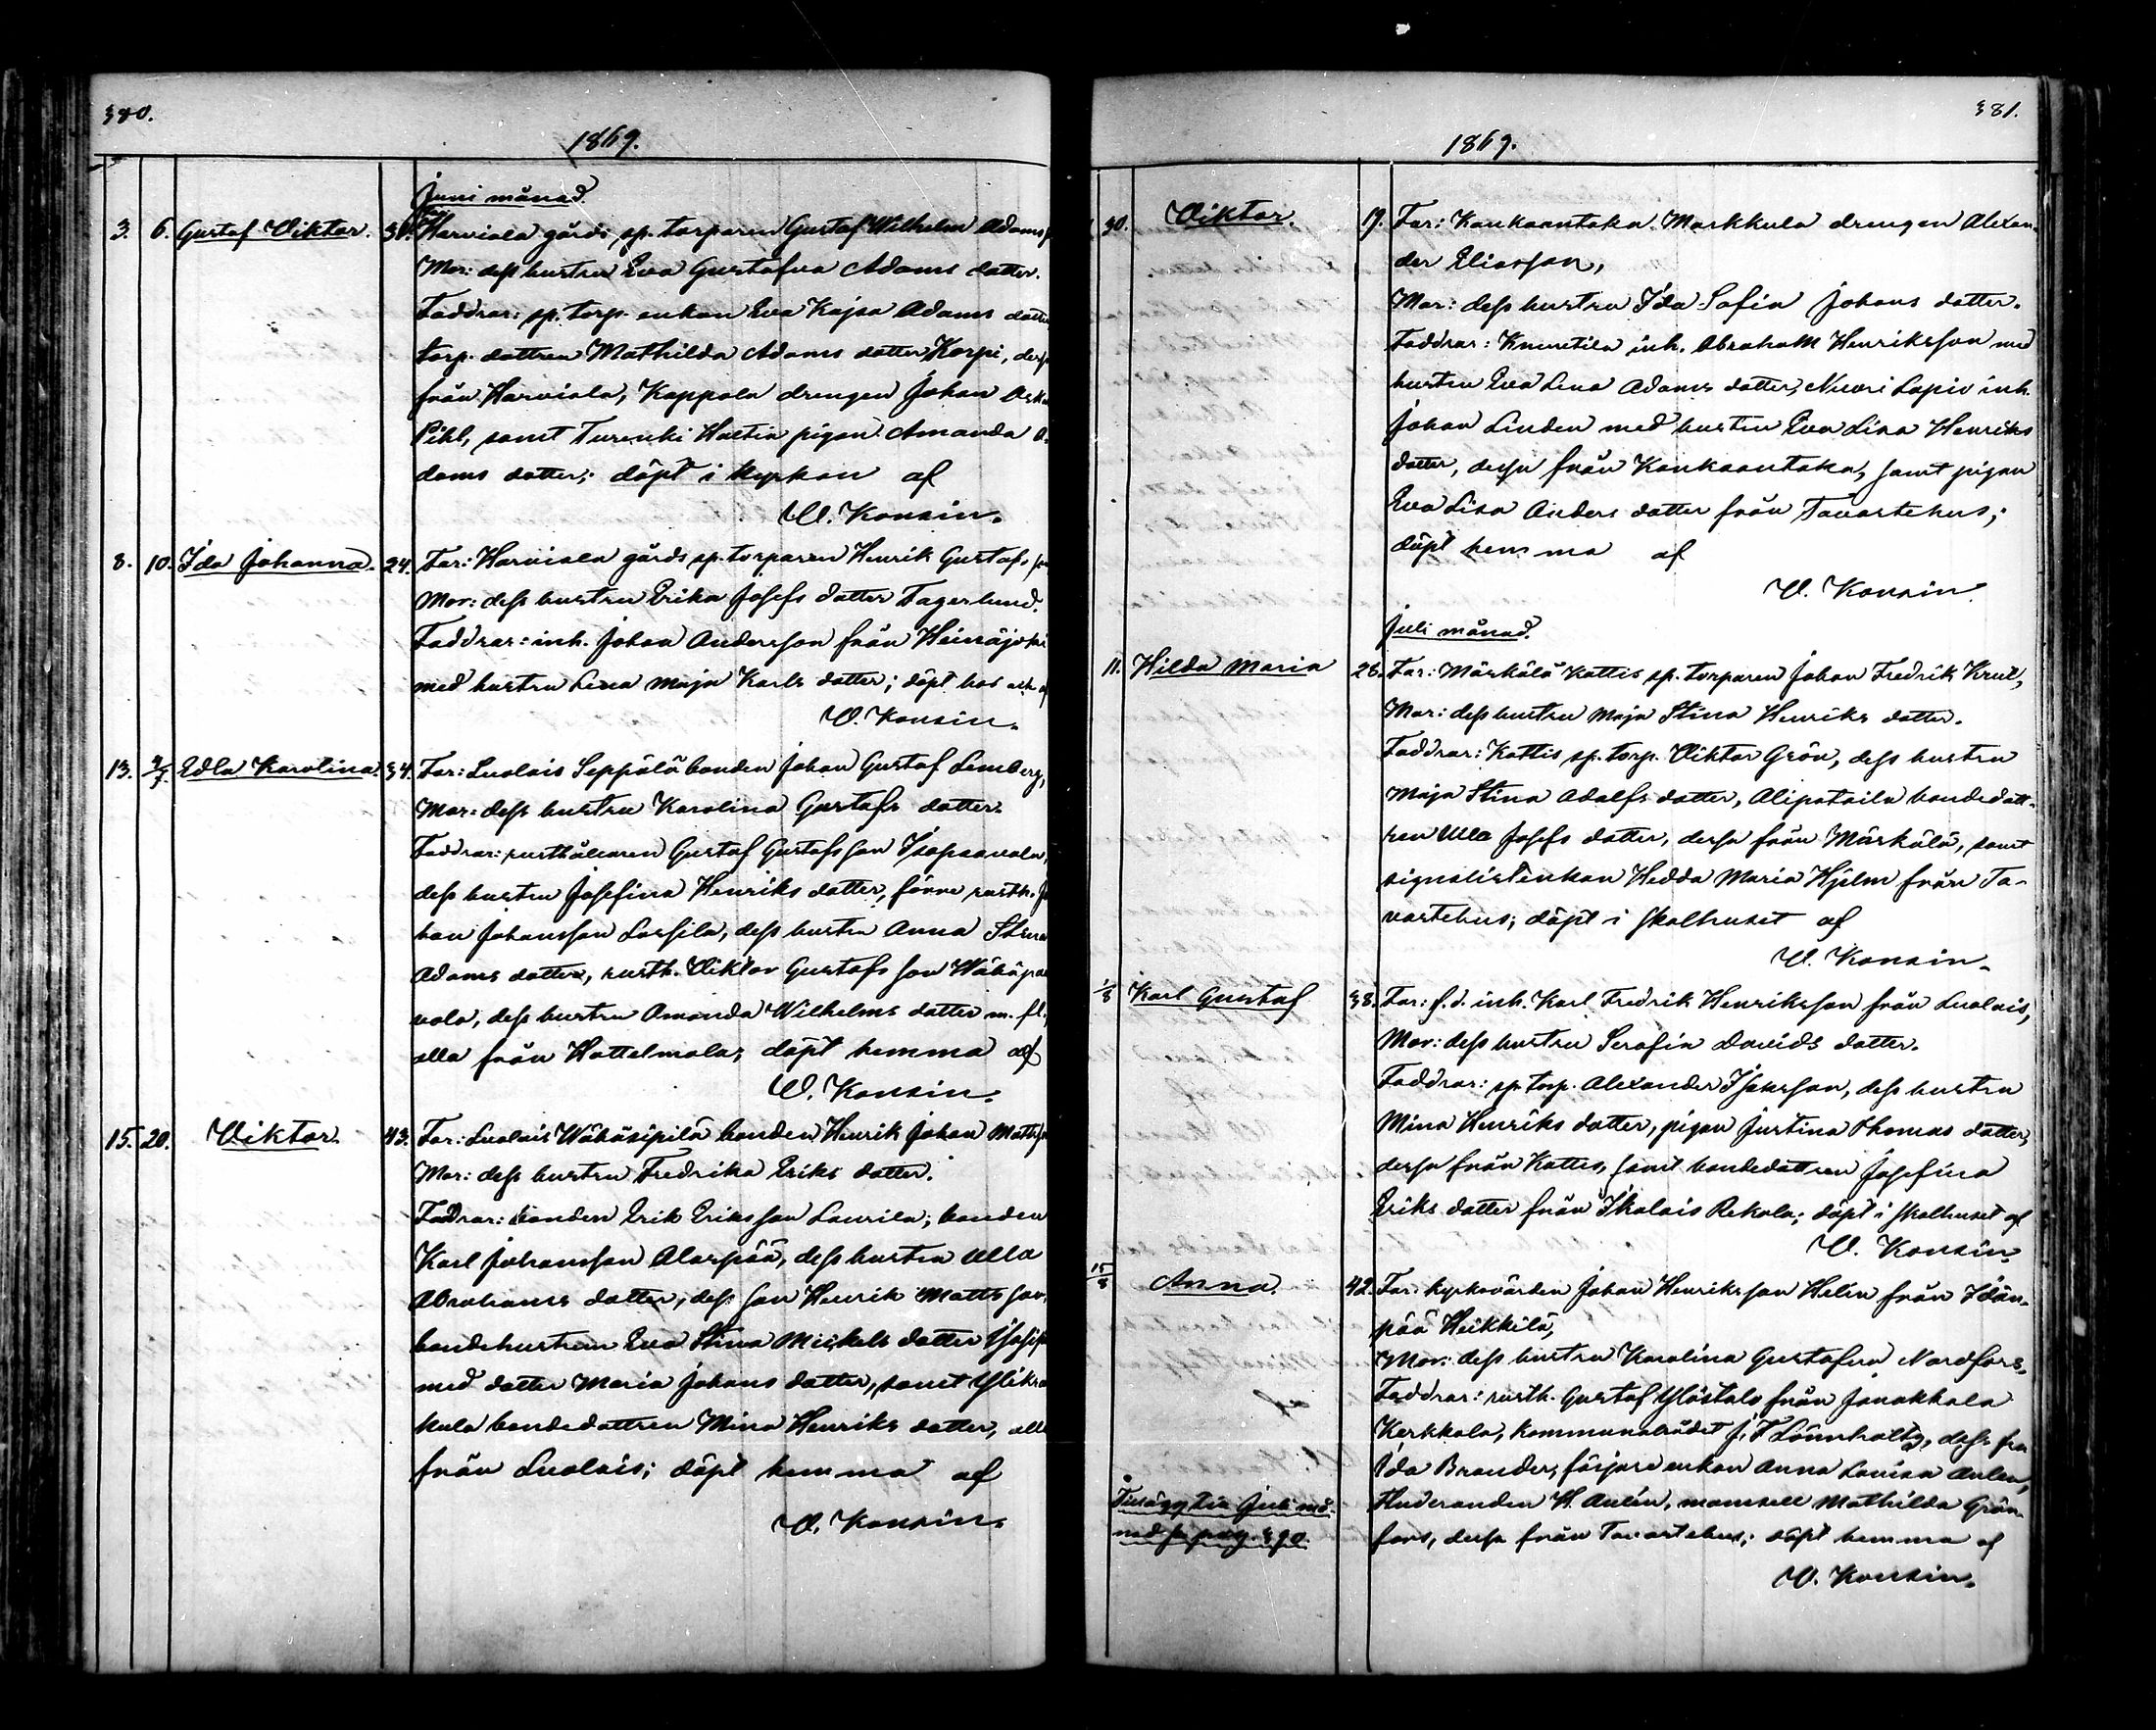 380.
1869.
Juni månad.
3. 6. Gustaf Viktor. 30. Harviala gårds sp. torparen Gustaf Wilhelm Adams
Mor: dess hustru Eva Gustafva Adams dotter.
Faddrar: sp. torp. enkan Eva Kajsa Adams dotter
torp. dottren Mathilda Adams dotter Korpi, dessa
från Harviala, Kappola drengen Johan Oska
Pihl, samt Turenki Haltia pigan Amanda A-
dams dotter; döpt i kyrkan af
W. Konsin.
8. 10. Ida Johanna. 24. Far: Harviala gårds sp. torparen Henrik Gustafs son
Mor: dess hustru Erika Josefs dotter Fagerlund.
Faddrar: inh. Johan Andersson från Heinäjoki
med hustru Lena Maja Karls dotter; döpt hos
W. Konsin.
13. 2/7. Edla Karolina. 34. Far: Luolais Seppälä bonden Johan Gustaf Lemberg,
Mor: dess hustru Karolina Gustafs dotter.
Faddrar: rusthållaren Gustaf Gustafsson Isopaavola,
dess hustru Josefina Henriks dotter, förre rusth. Jo
han Johansson Lassila, dess hustru Anna Stina
Adams dotter, rusth. Viktor Gustafs son Wähäpaa
vola, dess hustru Amanda Wilhelms dotter m. fl.,
alla från Hattelmala; döpt hemma af
W. Konsin.
15. 20. Viktor. 43. Far: Luolais Wähäsipilä bonden Henrik Johan Mattss
Mor: dess hustru Fredrika Eriks dotter.
Faddrar: bonden Erik Eriksson Laurila, bonden
Karl Johansson Alaspää, dess hustru Ulla
Abrahams dotter, dess son Henrik Matts son,
bondehustrun Eva Stina Mickels dotter
med dotter Maria Johans dotter, samt
kula bondedottren Mina Henriks dotter, alla
från Luolais; döpt hemma af
W. Konsin.
381.
1869.
30. Viktor. 19. Far: Kankaantaka Markkula drengen Alexan-
der Eliasson,
Mor: dess hustru Ida Sofia Johans dotter.
Faddrar: Knuutila inh. Abraham Henriksson med
hustru Eva Lena Adams dotter, inh.
Johan Linden med hustru Eva Lisa Henriks
dotter, dessa från Kankaantaka, samt pigan
Eva Lisa Anders dotter från Tavastehus;
döpt hemma af
W. Konsin.
Juli månad.
11. Hilda Maria 28. Far: Mäskälä Kattis sp. torparen Johan Fredrik Krul,
Mor: dess hustru Maja Stina Henriks dotter.
Faddrar: Kattis sp. torp. Viktor Grön, dess hustru
Maja Stina Adolfs dotter, Alipataila bondedott-
ren Ulla Josefs dotter, dessa från Mäskälä, samt
signalistenkan Hedda Maria Hjelm från Ta-
vastehus; döpt i skolhuset af
W. Konsin.
1/8 Karl Gustaf 38. Far: f. d. inh. Karl Fredrik Henriksson från Luolais,
Mor: dess hustru Serafia Davids dotter.
Faddrar: sp. torp. Alexander Isaksson, dess hustru
Mina Henriks dotter, pigan Justina Thomas dotter,
dessa från Kattis, samt bondedottren Josefina
Eriks dotter från Ikalois Rekola; döpt i skolhuset af
W. Konsin.
15/8 Anna. 42. Far: kyrkovärden Johan Henriksson Helen från Idän-
pää Heikkilä,
Mor: dess hustru Karolina Gustafva Nordfors.
Faddrar: rusth. Gustaf Ylöstalo från Janakkala
Kerkkola, kommunalrådet J. F. Lönnholtz, dess fru
Ida Brander, färjare enkan Anna Lovisa Aulen,
studeranden H. Aulén, mamsell Mathilda Grön-
fors, dessa från Tavastehus; döpt hemma af
W. Konsin.
Tillägg till Juli må-
nad se pag. 390.